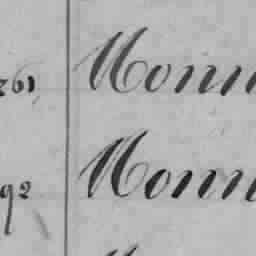 261 Monn
92 Monn